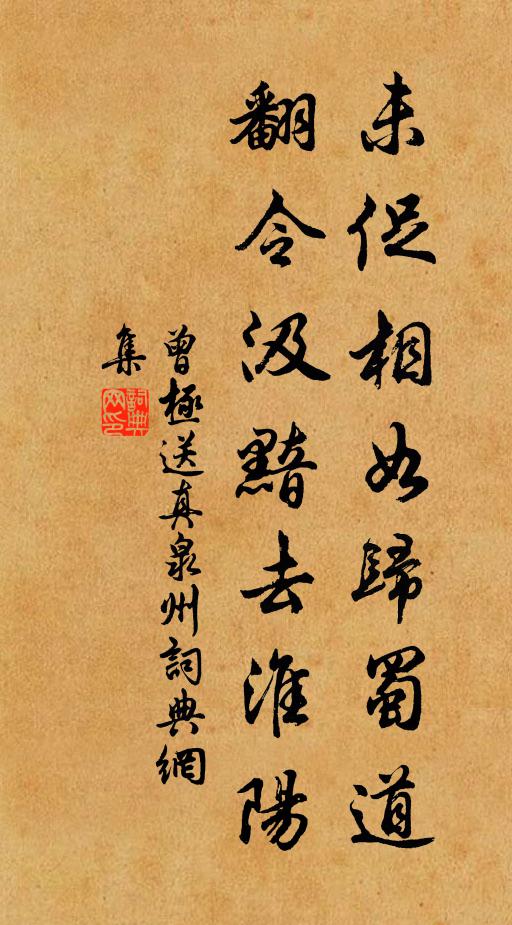 未促相如歸蜀道
翻令汲黯去淮陽
曾極送真泉州詞典網
集
詞典
網印